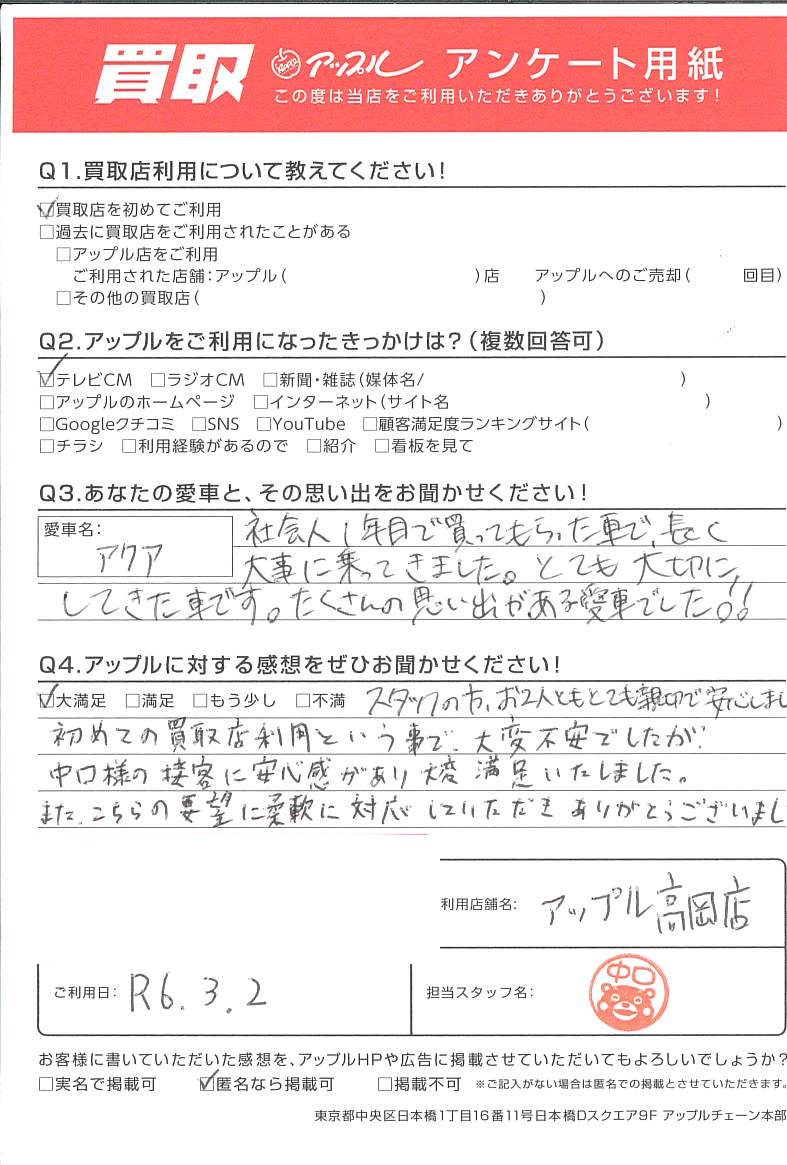 買取 アップル アンケート用紙
この度は当店をご利用いただきありがとうございます!
Q1.買取店利用について教えてください!
☑買取店を初めてご利用
□過去に買取店をご利用されたことがある
□アップル店をご利用
ご利用された店舗:アップル( )店 アップルへのご売却( 回目)
□その他の買取店( )
Q2.アップルをご利用になったきっかけは?(複数回答可)
☑テレビCM □ラジオCM □新聞・雑誌(媒体名/ )
□アップルのホームページ □インターネット(サイト名 )
□Googleクチコミ □SNS □YouTube □顧客満足度ランキングサイト( )
□チラシ □利用経験があるので □紹介 □看板を見て
Q3.あなたの愛車と、その思い出をお聞かせください!
愛車名:
アクア
社会人1年目で買ってもらった車で、長く
大事に乗ってきました。とても大切に
してきた車です。たくさんの思い出がある愛車でした!!
Q4.アップルに対する感想をぜひお聞かせください!
☑大満足 □満足 □もう少し □不満 スタッフの方、お2人ともとても親切で安心しまし
初めての買取店利用という事で、大変不安でしたが、
中口様の接客に安心感があり大変満足いたしました。
また、こちらの要望に柔軟に対応していただきありがとうございまし
利用店舗名: アップル高岡店
ご利用日: R6.3.2
担当スタッフ名: 中口
お客様に書いていただいた感想を、アップルHPや広告に掲載させていただいてもよろしいでしょうか?
□実名で掲載可 ☑匿名なら掲載可 □掲載不可 ※ご記入がない場合は匿名での掲載とさせていただきます。
東京都中央区日本橋1丁目16番11号日本橋Dスクエア9F アップルチェーン本部